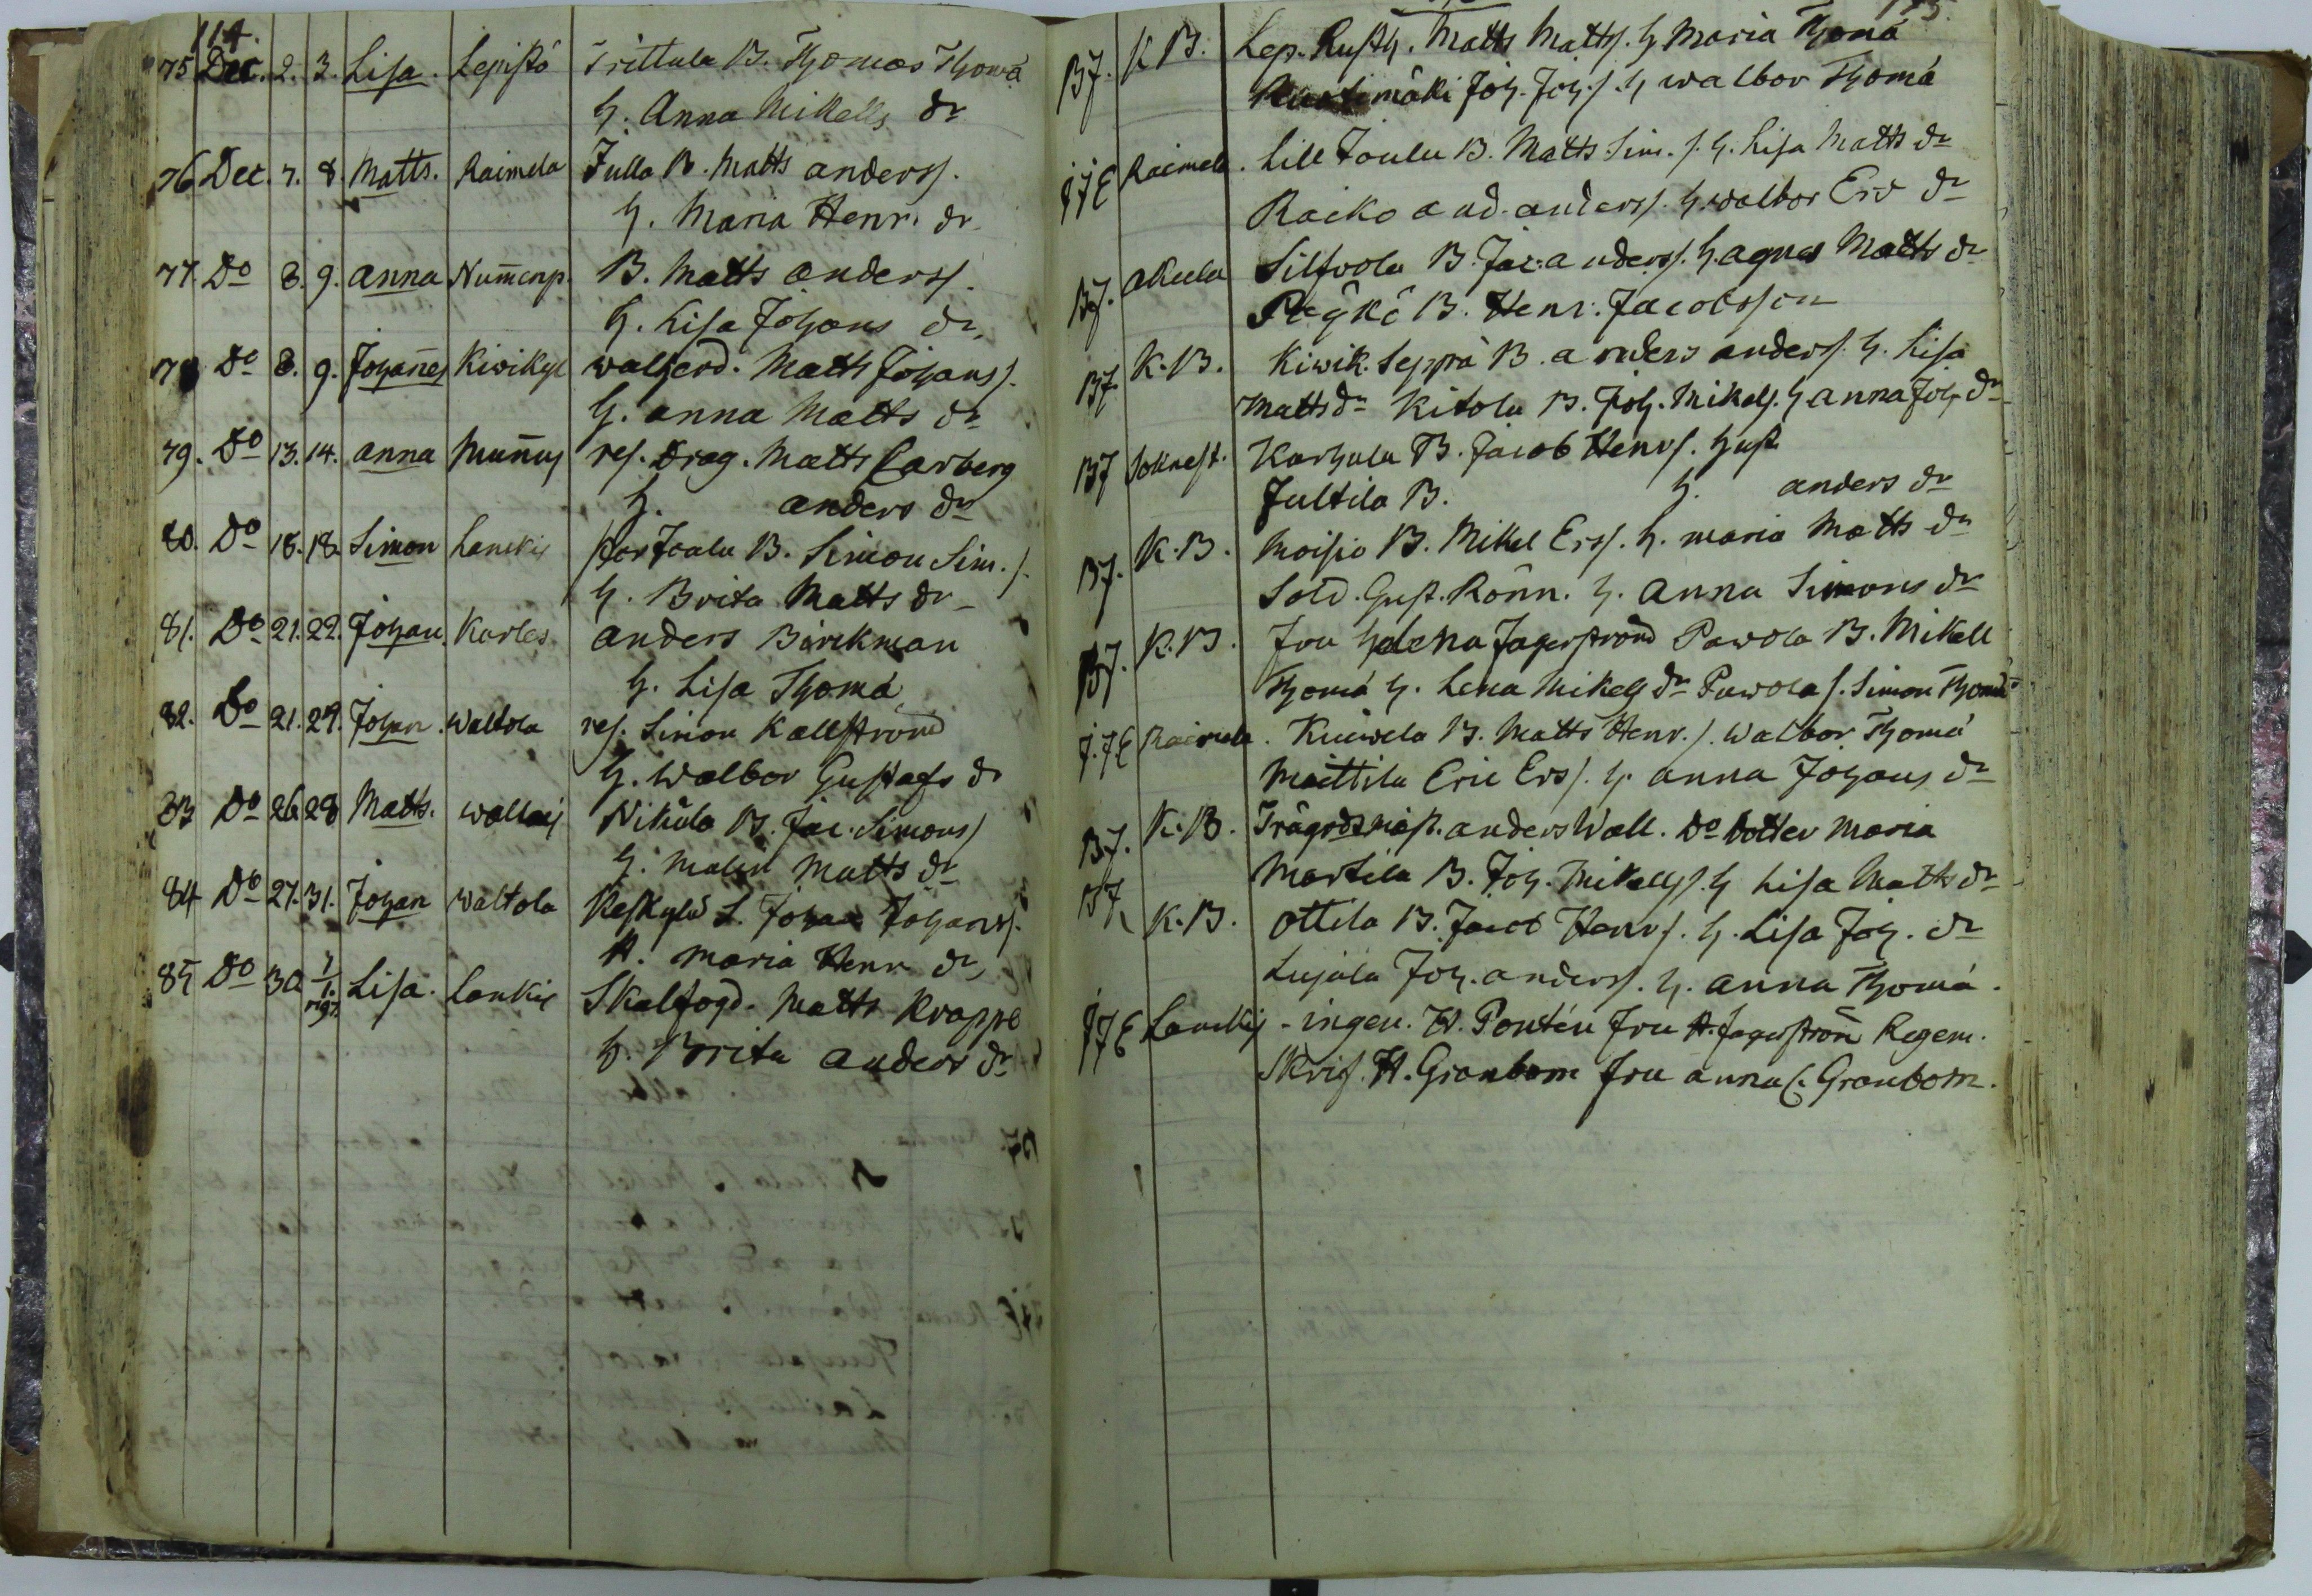 114.
75 Dec. 2. 3. Lisa. Lepistö Trittula B. Thomas Thomæ
h. Anna Mikells dr
76 Dec. 7. 8. Matts. Raimela Julla B. Matts anderss.
h. Maria Henr. dr
77. Do 8. 9. anna Num̄enp. B. Matts anderss.
h. Lisa Johans dr
78 Do 8. 9. Johan̄es Kiwikyl Matts Johanss.
h. anna Matts dr
79. Do 13. 14. anna Mun̄us res. Drag. Matts Carberg
h. anders dr
80. Do 18. 18. Simon Lauckis Simon Sim. s.
h. Brita Matts dr
81. Do 21. 22. Johan. Karles anders Birckman
h. Lisa Thomæ
82. Do 21. 29. Johan. Waltola res. Simon Kællström̄
h. Walbor Gustafs dr
83 Do 26 28 Matts. Wallais Nikula B. Jac. Simons
h. Malin Matts dr
84 Do 27. 31. Johan Waltola Keskylä S. Johan Johanss.
H. Maria Henr dr
85 Do 30 1/1. Lisa. Lankis Skalfogd. Matts Krappe
h. Brita anders dr
115.
B7. K B. Lep. Rusth. Matts Matts. h Maria Thomæ
Joh. Joh. s. h walbor Thomæ
J7E Raimela. Lill Joulu B. Matts Sim. s. h. Lisa Matts dr
Raiko and. anderss. h. walbor Ers dr
B7. akeela Silfvola B. Jac. anderss. h. agnes Matts dr
Pög̈kö B. Henr. Jacobsson
B7. K. B. Kiwik. Seppä B. anders anders. h. Lisa
Matts dr Kitola B. Joh. Mikels. h anna Joh dr
B7 Soknest. Karhula B. Jacob Henrs. hust
Jultila B. h. anders dr
B7. K. B. Moisio B. Mikel Erss. h. maria Matts dr
Sold. Gust. Rönn. h. Anna Simons dr
B7. K. B. Fru helena Jagerström̄ Pawola B. Mikell
Thomæ h. Lena Mikels dr Pawola s. Simon Thomæ
J. 7E Raimela. Kuiwela B. Matts Henr. s. Walbor Thomæ
Maittila Eric Ers s. h. anna Johans dr
B7. K. B. Trägodsmäst. anders Wall. Do dotter Maria
Martila B. Joh. Mikells s. h Lisa Matts dr
B7. K. B. Ottila B. Jacob Henrs. h. Lisa Joh. dr
Lujala Joh. anderss. h. anna Thomæ.
J7E Lauckis - ingen. H. Pontén Fru H. Jagerström̄ Regem.
Skrif. H. Granbom Fru anna C. Granbom.